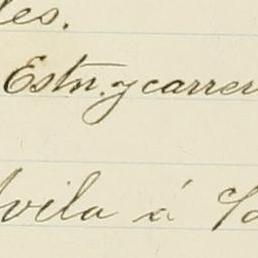 les.
Estn. y carrer
Avila á